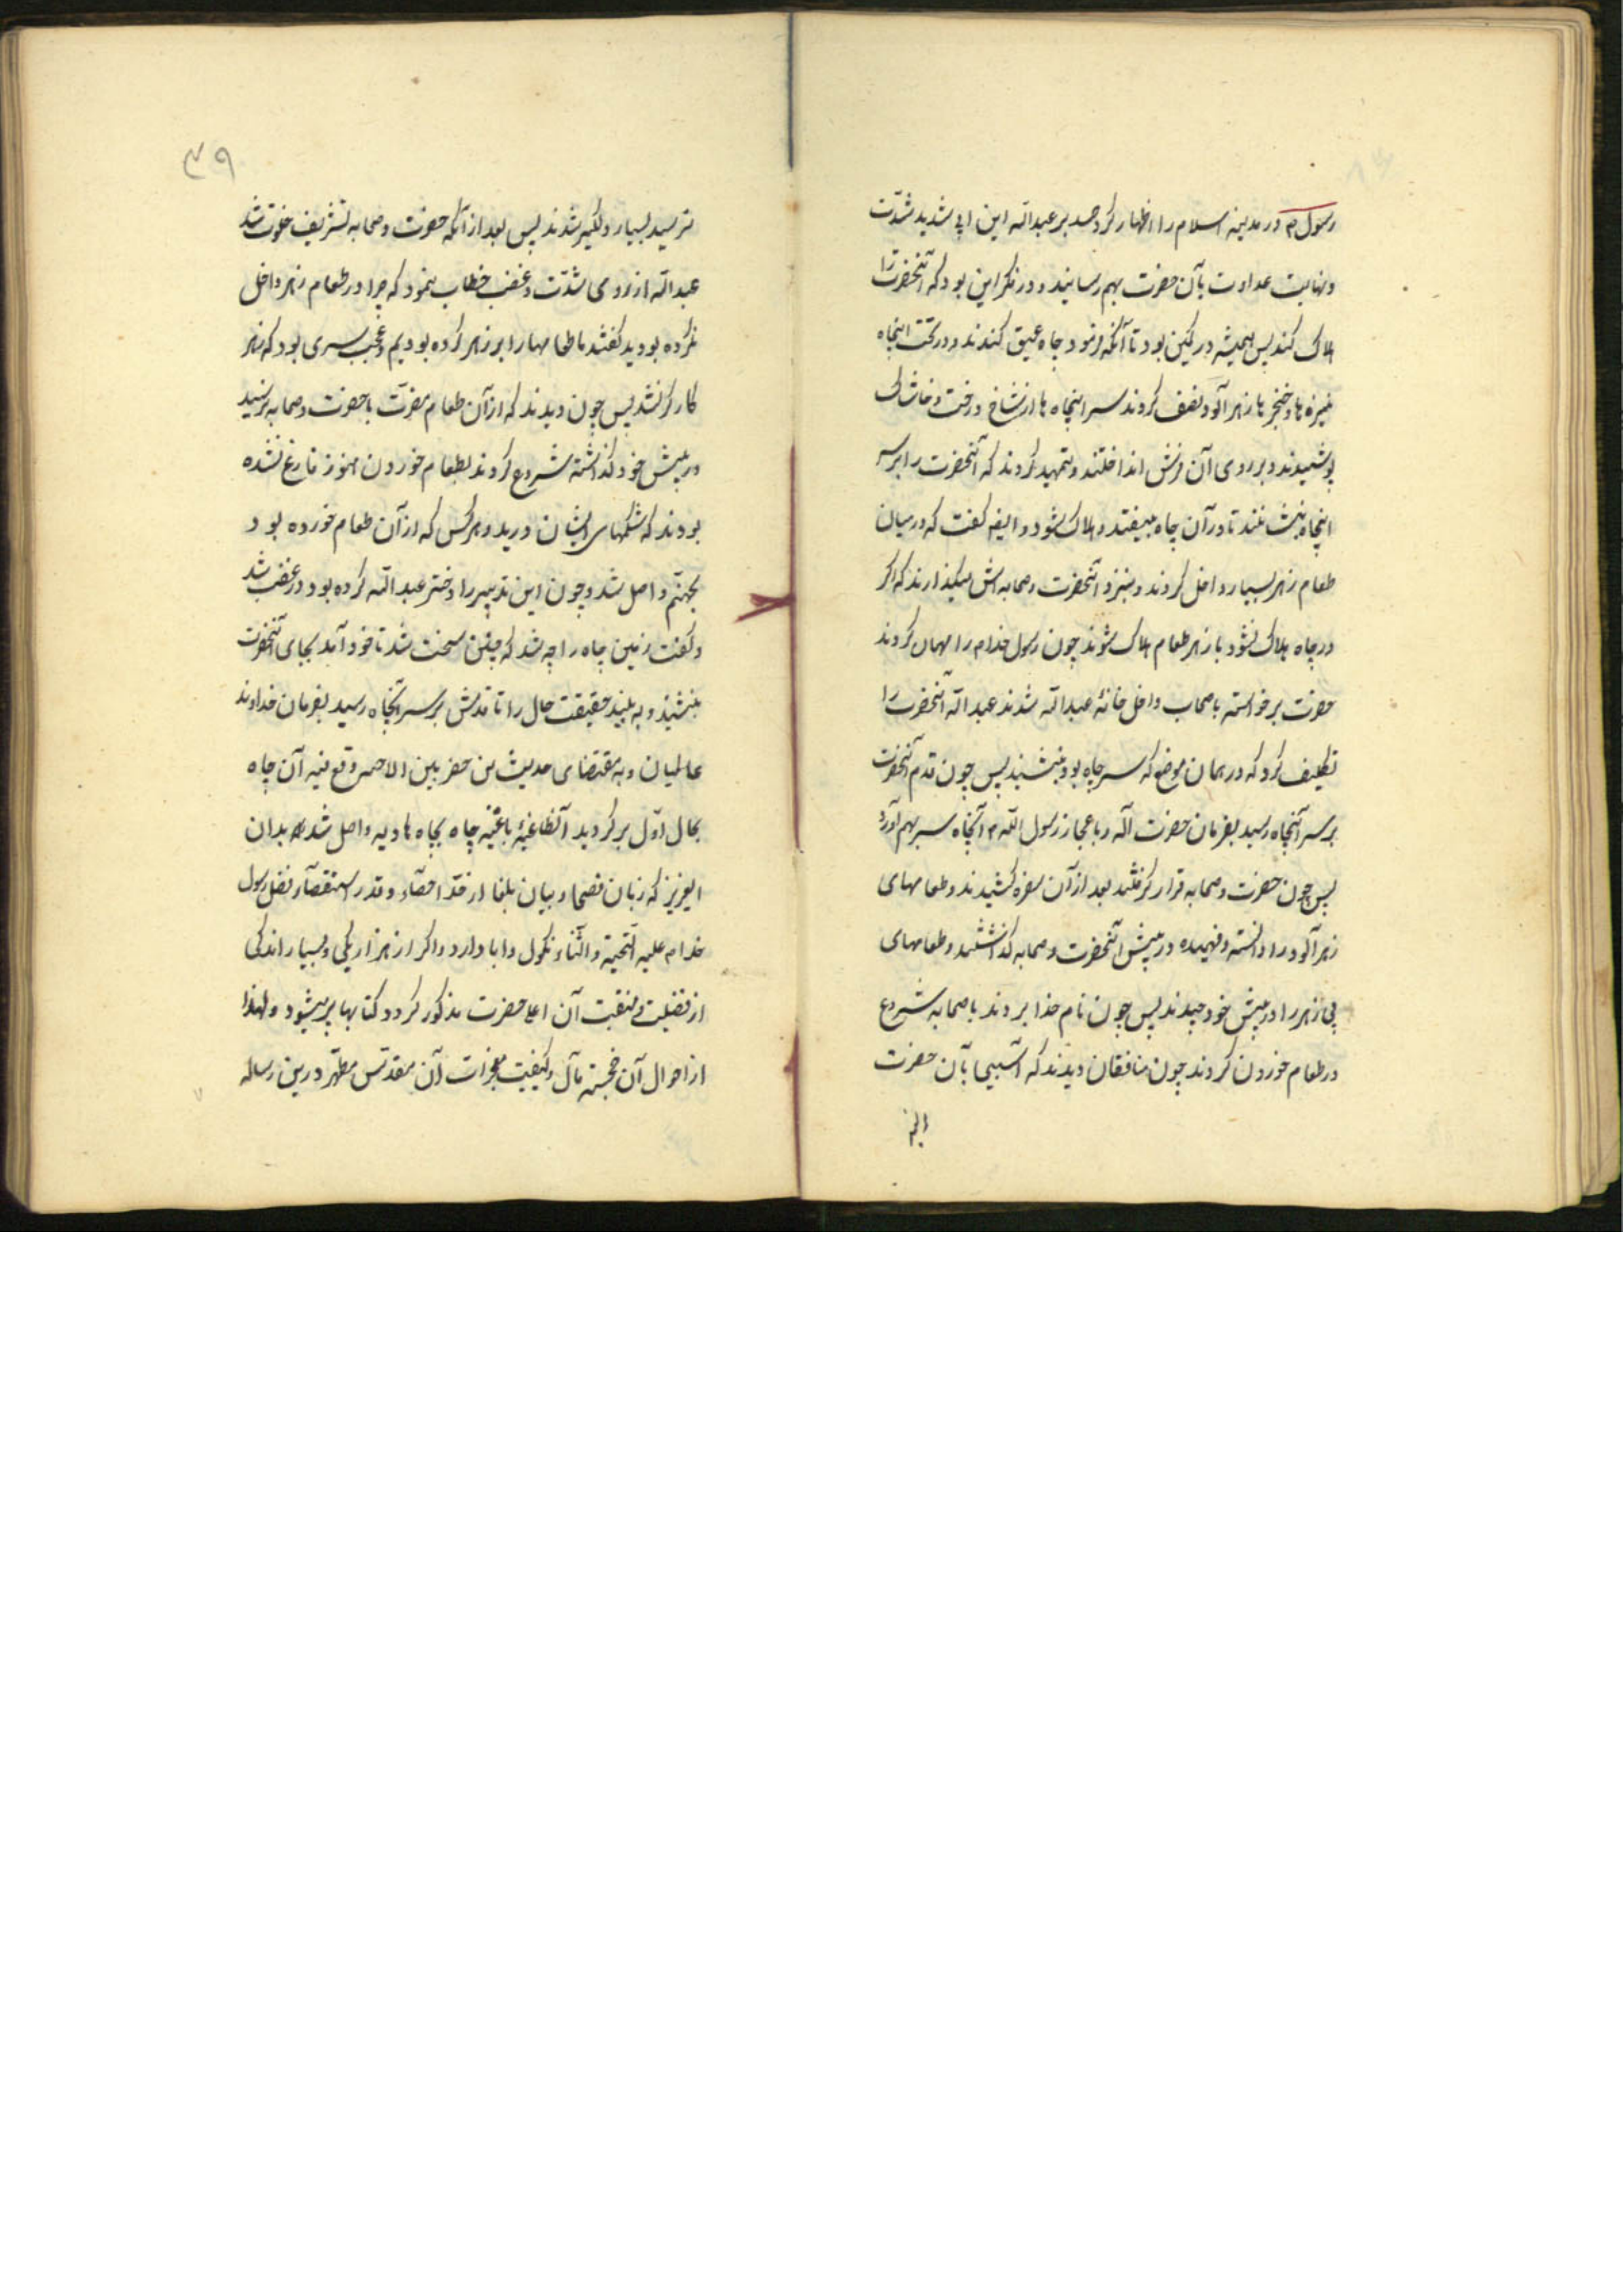 رسول م در مدینه اسلام را اظهار کرد حسد بر عبدالله ابن ابی شدید شدت
و نهایت عداوت بآن حضرت بهم رسانید و در فکر این بود که آنحضرت را
هلاک کند پس همیشه در کمین بود تا آنکه فرمود چاه عمیق کندند و در تحت اینچاه
نیزه ها و خنجر ها زهر آلود نصف کردند سر اینچاه ها از شاخ درخت و خاشاک
پوشیدند و بر روی آن فرش انداختند و تمهید کردند که آنحضرت را بر سر
اینچاه بنشانند تا در آن چاه بیفتد و هلاک شود و ایضه گفت که در میان
طعام زهر بسیار داخل کردند و بنزد آنحضرت و صحابه اش میگذارند که اگر
در چاه هلاک نشود با زهر طعام هلاک شوند چون رسول خدا م را مهمان کردند
حضرت برخواسته با صحاب داخل خانهٔ عبدالله شدند عبدالله آنحضرت را
تکلیف کرد که در همان موضع که سر چاه بود بنشیند پس چون قدم آنحضرت
بر سر آنچاه رسید بفرمان حضرت آله و با عجاز رسول الله م آنچاه سر بهم آورد
پس چون حضرت و صحابه قرار گرفتند بعد از آن سفره کشیدند و طعامهای
زهر آلود را دانسته و فهمیده در پیش آنحضرت و صحابه گذاشتند و طعامهای
بی زهر را در پیش خود چیدند پس چون نام خدا بردند با صحابه شروع
در طعام خوردن کردند چون منافقان دیدند که آسیبی بآن حضرت
۳۹
نرسید بسیار دلگیر شدند پس بعد از آنکه حضرت و صحابه تشریف خوت شد
عبدالله از روی شدت و غضب خطاب نمود که چرا در طعام زهر داخل
نکرده بودید گفتند ما طعامها را پر زهر کرده بودیم و عجب سری بود که زهر
کارگر نشد پس چون دیدند که از آن طعام مضرت با حضرت و صحابه نرسید
در پیش خود گذاشته شروع کردند بطعام خوردن هنوز فارغ نشده
بودند که شکمهای ایشان درید و هر کس که از آن طعام خورده بود
بجهنم واصل شد و چون این تدبیر را دختر عبدالله کرده بود در غضب شد
و گفت زمین چاه را چه شد که چنین سخت شد تا خود آمد بجای آنحضرت
بنشیند و به بیند حقیقت حال را تا قدمش بر سر آنچاه رسید بفرمان خداوند
عالمیان و به مقتضای حدیث من حفر بین الاحمر وقع فیه آن چاه
بحال اول برگردید آنطاغیهٔ باغیه چاه بچاه هاویه واصل شد بدان
ایعزیز که زبان فصحا و بیان بلغا از حد احصاء و قدر استقصآء فضل رسول
خدا م علیه التحیة و الثناء نکول و ابا دارد و اگر از هزار یکی و بسیار اندکی
از فضیلت و منقبت آن اعلا حضرت مذکور گردد کتابها پر میشود و لهذا
از احوال آن خجسته مآل و کیفیت معجزات آن مقدس مطهر درین رساله